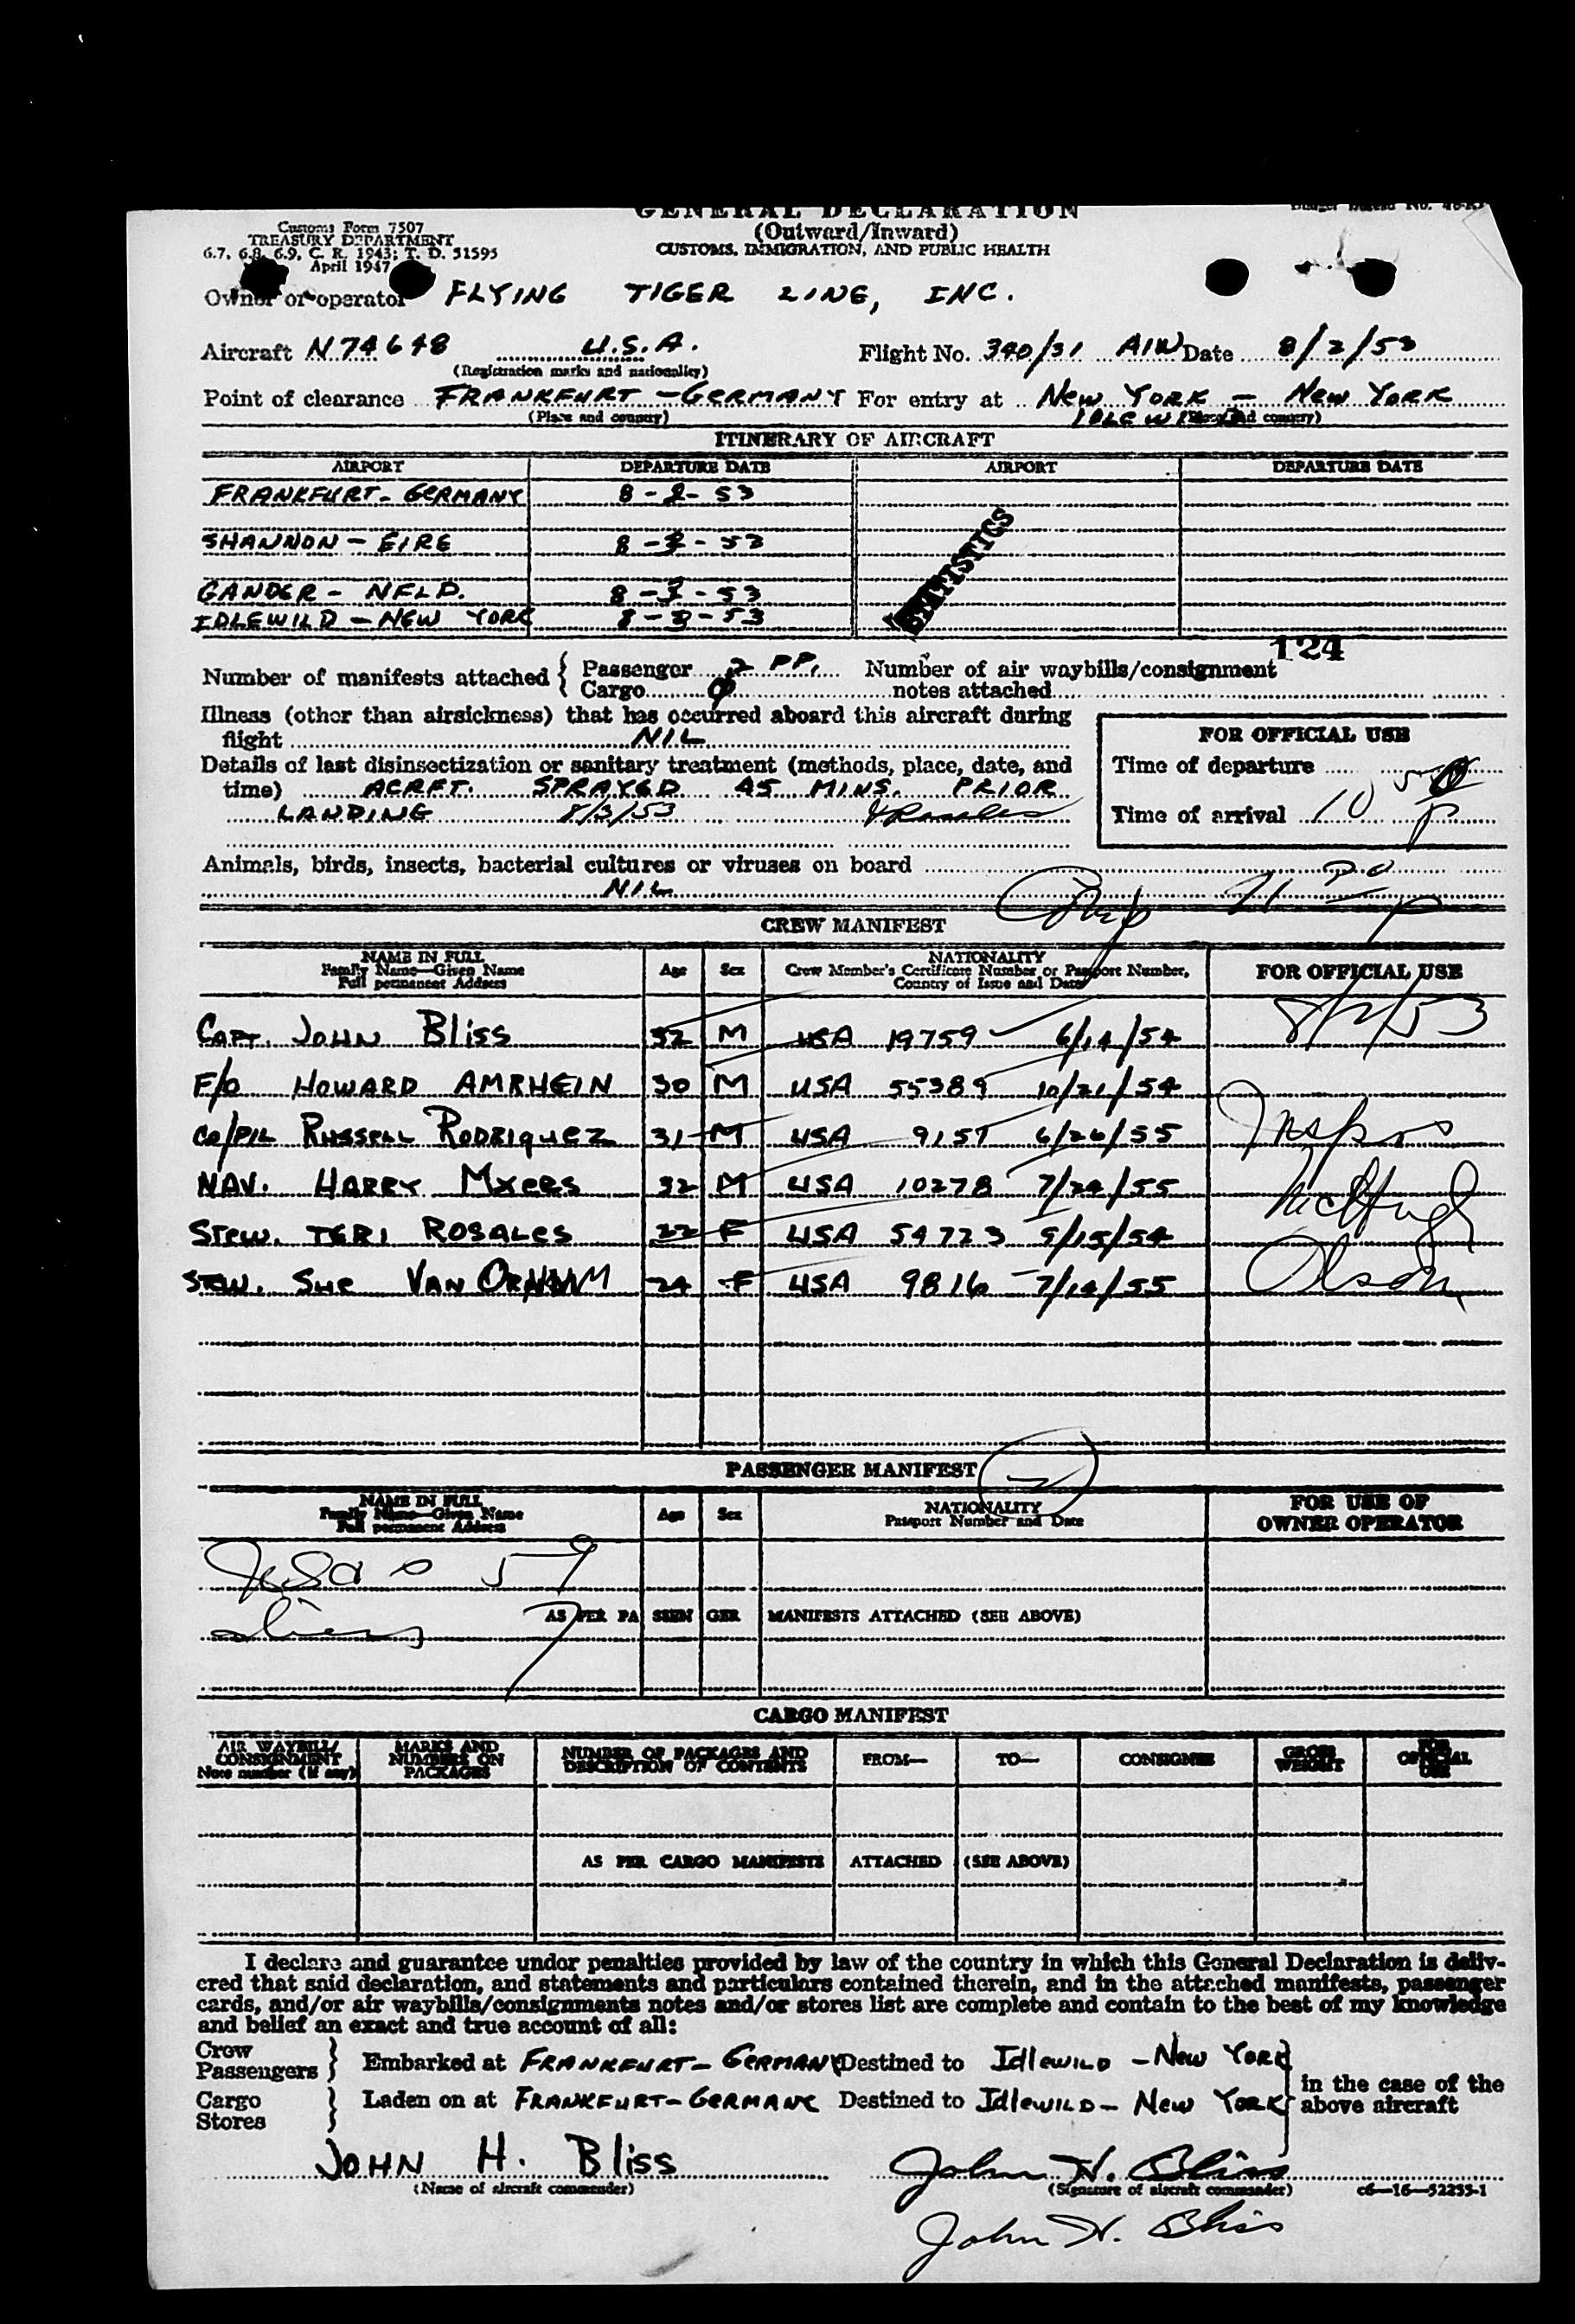 GENERAL DECLARATION
(Outward/Inward)
CUSTOMS, IMMIGRATION, AND PUBLIC HEALTH
Customs Form 7507
TREASURY DEPARTMENT
6.7, 6.8, 6.9, C. R. 1943; T. D. 51595
April 1947
Owner or operator FLYING TIGER LINE, INC.
Aircraft N74648 U.S.A. Flight No. 340/31 AIW Date 8/2/53
(Registration marks and nationality)
Point of clearance FRANKFURT - GERMANY For entry at NEW YORK - NEW YORK
(Place and country) IDLEWILD (Place and country)
ITINERARY OF AIRCRAFT
AIRPORT DEPARTURE DATE AIRPORT DEPARTURE DATE
FRANKFURT - GERMANY 8-2-53
SHANNON - EIRE 8-3-53
GANDER - NFLD. 8-3-53
IDLEWILD - NEW YORK 8-3-53
STATISTICS
124
Number of manifests attached { Passenger 2 PP. Number of air waybills/consignment
Cargo 0 notes attached
Illness (other than airsickness) that has occurred aboard this aircraft during
flight NIL
FOR OFFICIAL USE
Details of last disinsectization or sanitary treatment (methods, place, date, and
time) ACRFT. SPRAYED 45 MINS. PRIOR
LANDING 8/3/53
Time of departure
Time of arrival 10 50 P
Animals, birds, insects, bacterial cultures or viruses on board
NIL
CREW MANIFEST
NAME IN FULL Age Sex NATIONALITY FOR OFFICIAL USE
Family Name—Given Name Crew Member's Certificate Number or Passport Number,
Full permanent Address Country of Issue and Date
CAPT. JOHN BLISS 32 M USA 19759 6/14/54
F/O HOWARD AMRHEIN 30 M USA 55389 10/21/54
CO/PIL RUSSELL RODRIQUEZ 31 M USA 9157 6/26/55 Insprs
NAV. HARRY MYERS 32 M USA 10278 7/24/55 McHugh
STEW. TERI ROSALES 22 F USA 54723 9/15/54
STEW. SUE VAN 24 F USA 9816 7/14/55 Olson
PASSENGER MANIFEST
NAME IN FULL Age Sex NATIONALITY FOR USE OF
Family Name—Given Name Passport Number and Date OWNER OPERATOR
Full permanent Address
59
aliens
AS PER PASSENGER MANIFESTS ATTACHED (SEE ABOVE)
CARGO MANIFEST
AIR WAYBILL/ MARKS AND NUMBER OF PACKAGES AND FROM— TO— CONSIGNEE GROSS FOR
CONSIGNMENT NUMBERS ON DESCRIPTION OF CONTENTS WEIGHT OFFICIAL
Note number (if any) PACKAGES USE
AS PER CARGO MANIFESTS ATTACHED (SEE ABOVE)
I declare and guarantee under penalties provided by law of the country in which this General Declaration is deliv-
ered that said declaration, and statements and particulars contained therein, and in the attached manifests, passenger
cards, and/or air waybills/consignments notes and/or stores list are complete and contain to the best of my knowledge
and belief an exact and true account of all:
Crew
Passengers } Embarked at FRANKFURT - GERMANY Destined to IDLEWILD - NEW YORK
in the case of the
Cargo } Laden on at FRANKFURT - GERMANY Destined to IDLEWILD - NEW YORK above aircraft
Stores
JOHN H. BLISS John H. Bliss
(Name of aircraft commander) (Signature of aircraft commander) c6—16—52255-1
John H. Bliss